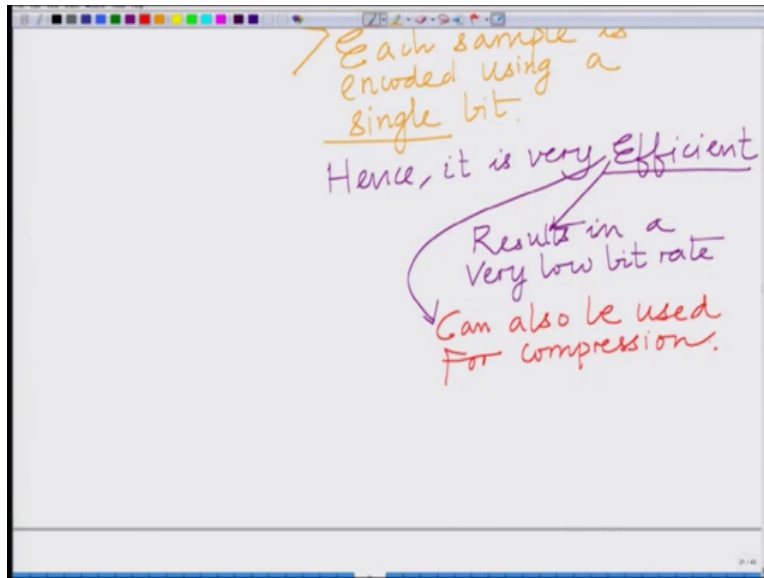 Each sample is
encoded using a
single bit.
Hence, it is very Efficient
Results in a
very low bit rate
Can also be used
For compression.